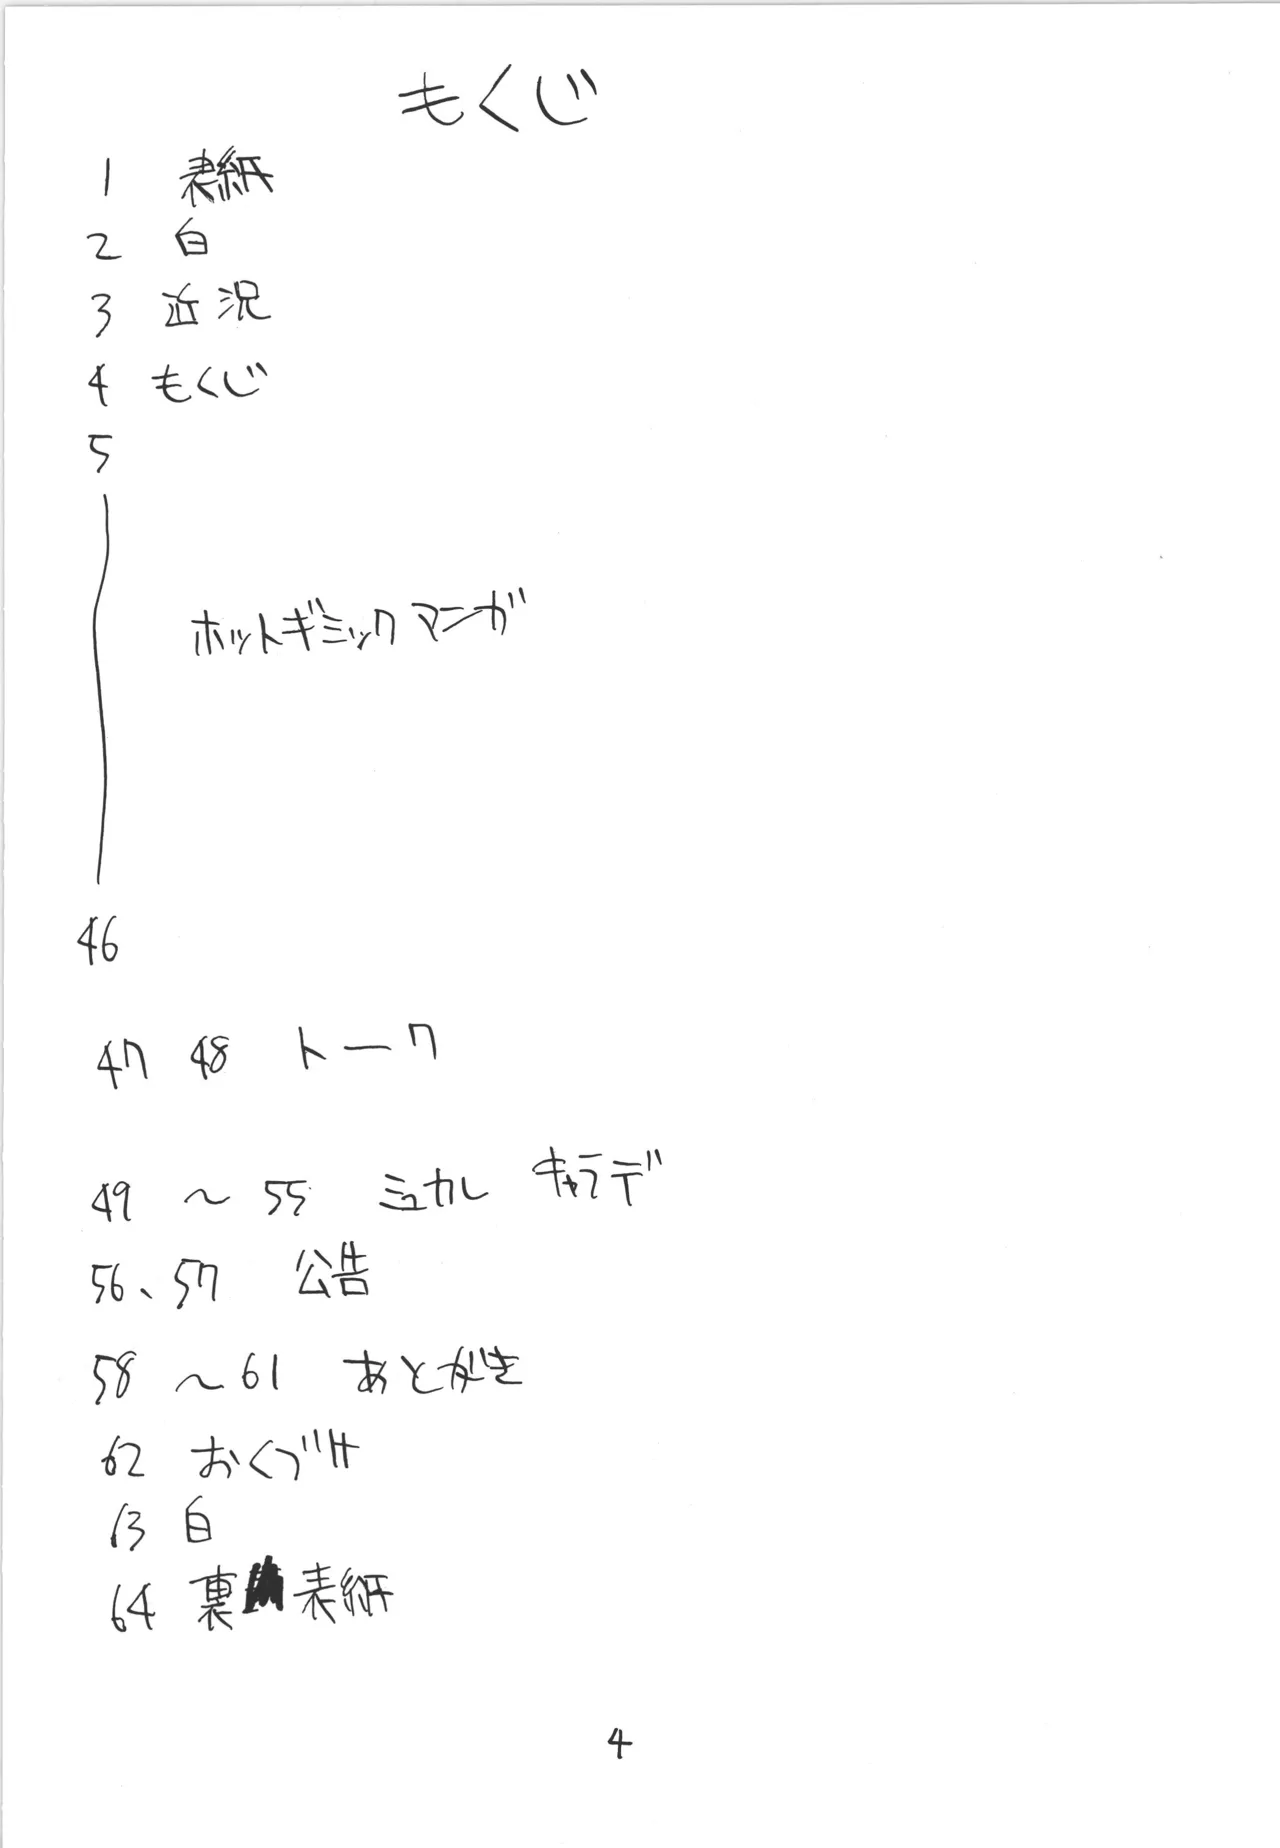 もくじ
1 表紙
2 白
3 近況
4 もくじ
5
ホットギミック マンガ
46
47 48 トーク
49 〜 55 ミュカレ キャラデ
56、57 公告
58 〜61 あとがき
62 おくづけ
63 白
64 裏 表紙
4